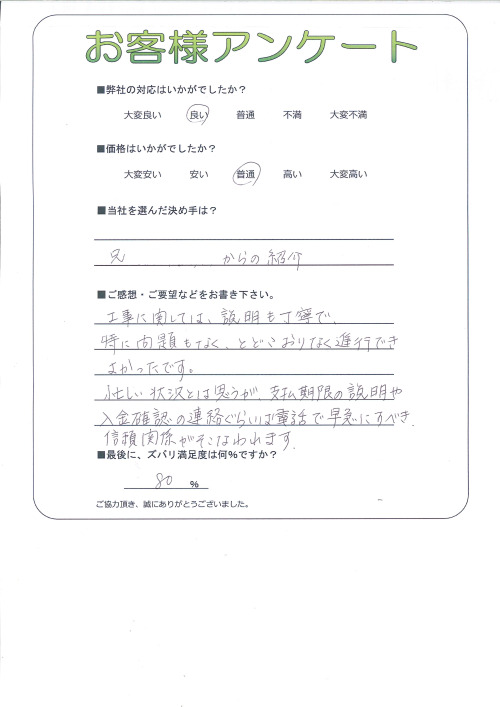 お客様アンケート
■弊社の対応はいかがでしたか？
大変良い 良い 普通 不満 大変不満
■価格はいかがでしたか？
大変安い 安い 普通 高い 大変高い
■当社を選んだ決め手は？
兄 からの紹介
■ご感想・ご要望などをお書き下さい。
工事に関しては、説明も丁寧で、
特に問題もなく、とどこおりなく進行でき
よかったです。
忙しい状況とは思うが、支払期限の説明や
入金確認の連絡ぐらいは電話で早急にすべき.
信頼関係がそこなわれます.
■最後に、ズバリ満足度は何%ですか？
80 %
ご協力頂き、誠にありがとうございました。